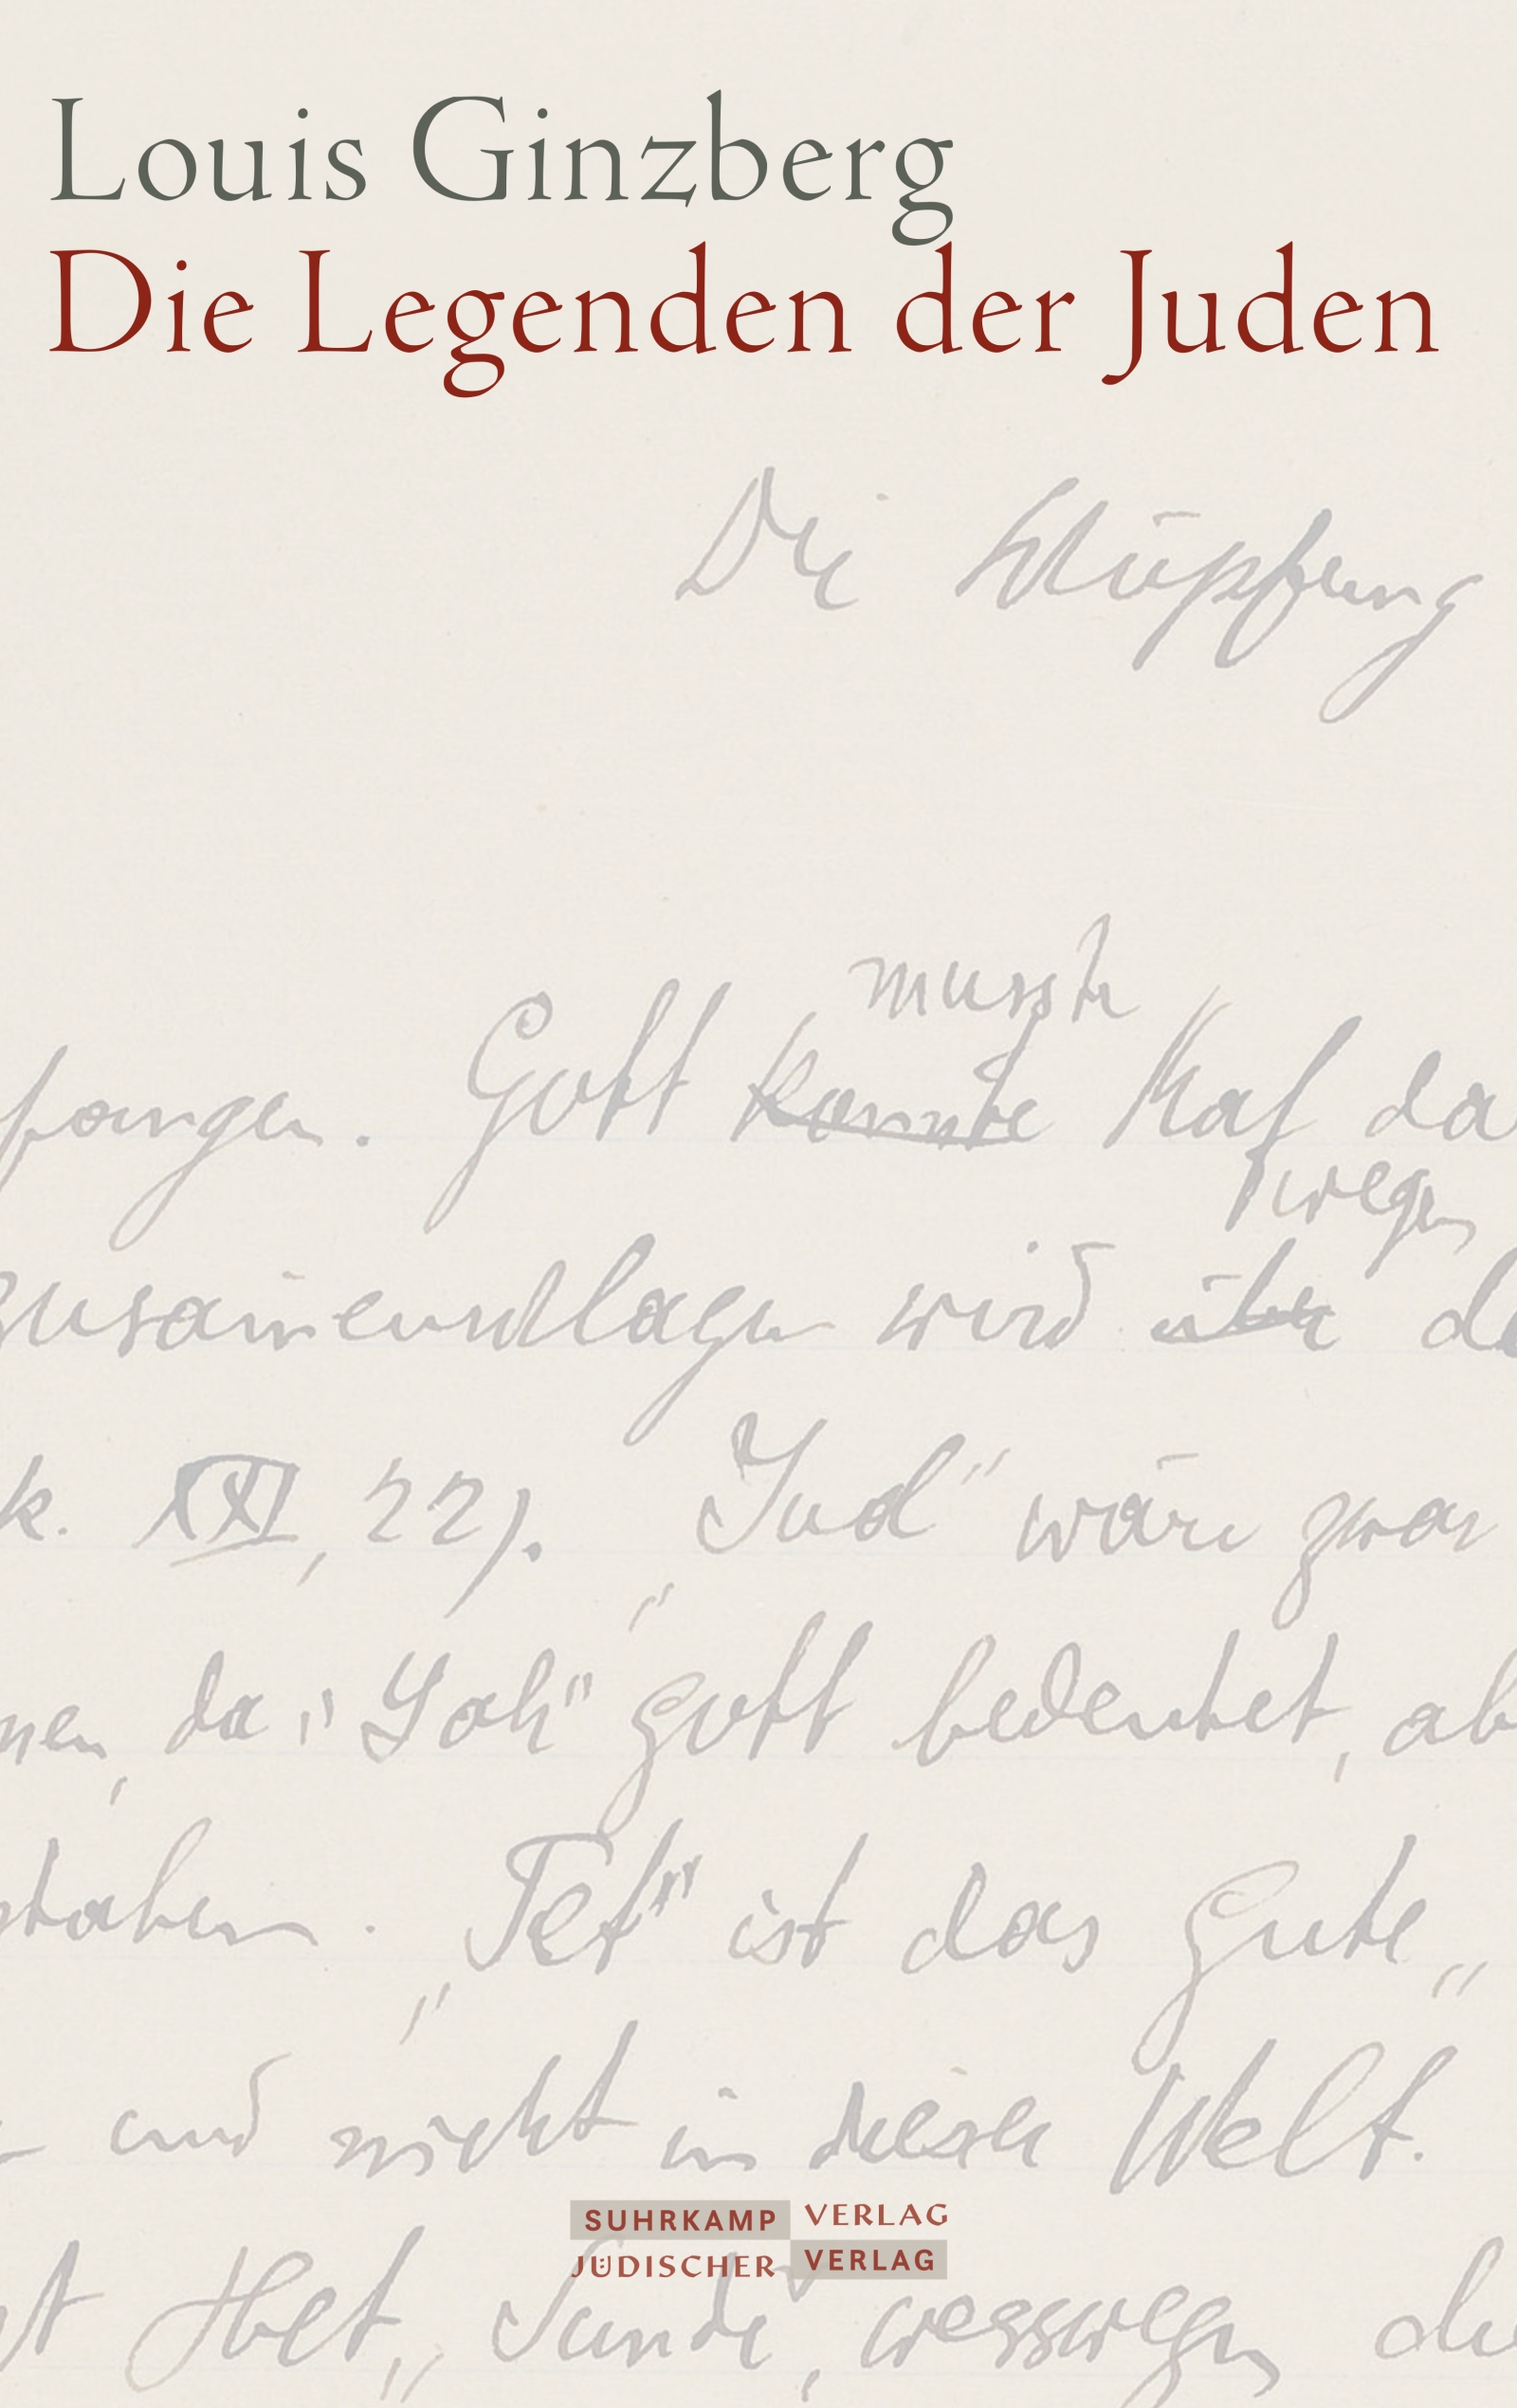 Louis Ginzberg
Die Legenden der Juden
Die Schöpfung
musste
fangen. Gott konnte Kaf da
wegen
zusammenschlagen wird über de
k. XXI, 22). „Jud" wäre zwar
nen, da „Yah" Gott bedeutet, ab
staben. „Tet" ist das Gute„
und nicht in dieser Welt.
SUHRKAMP VERLAG
JÜDISCHER VERLAG
t Het„ Sünde, wesswegen die